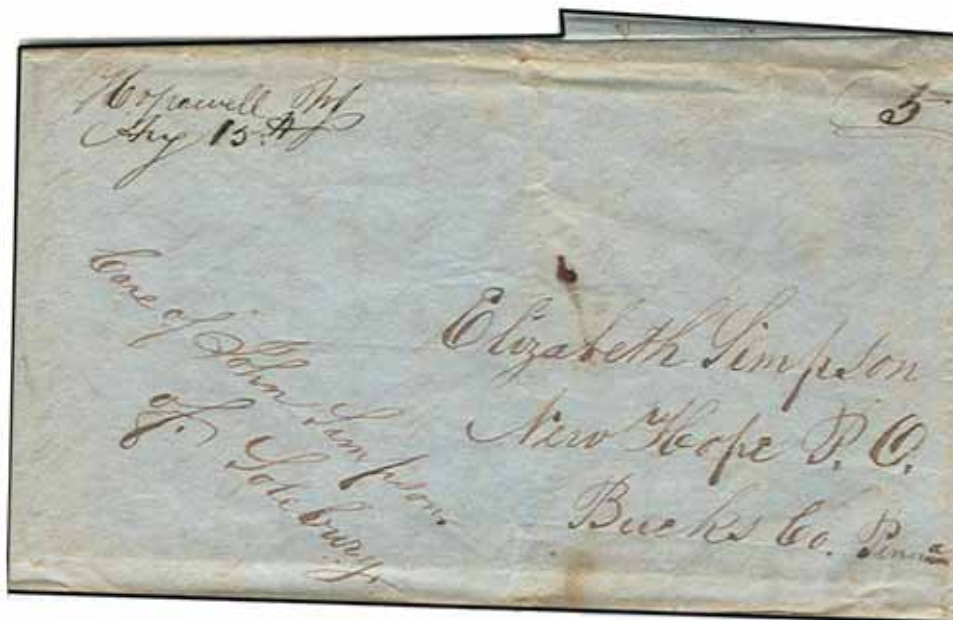 Hopewell
15th
5
Care of John Simpson
of Solebury.
Elizabeth Simpson
New Hope P. O.
Bucks Co. Penna